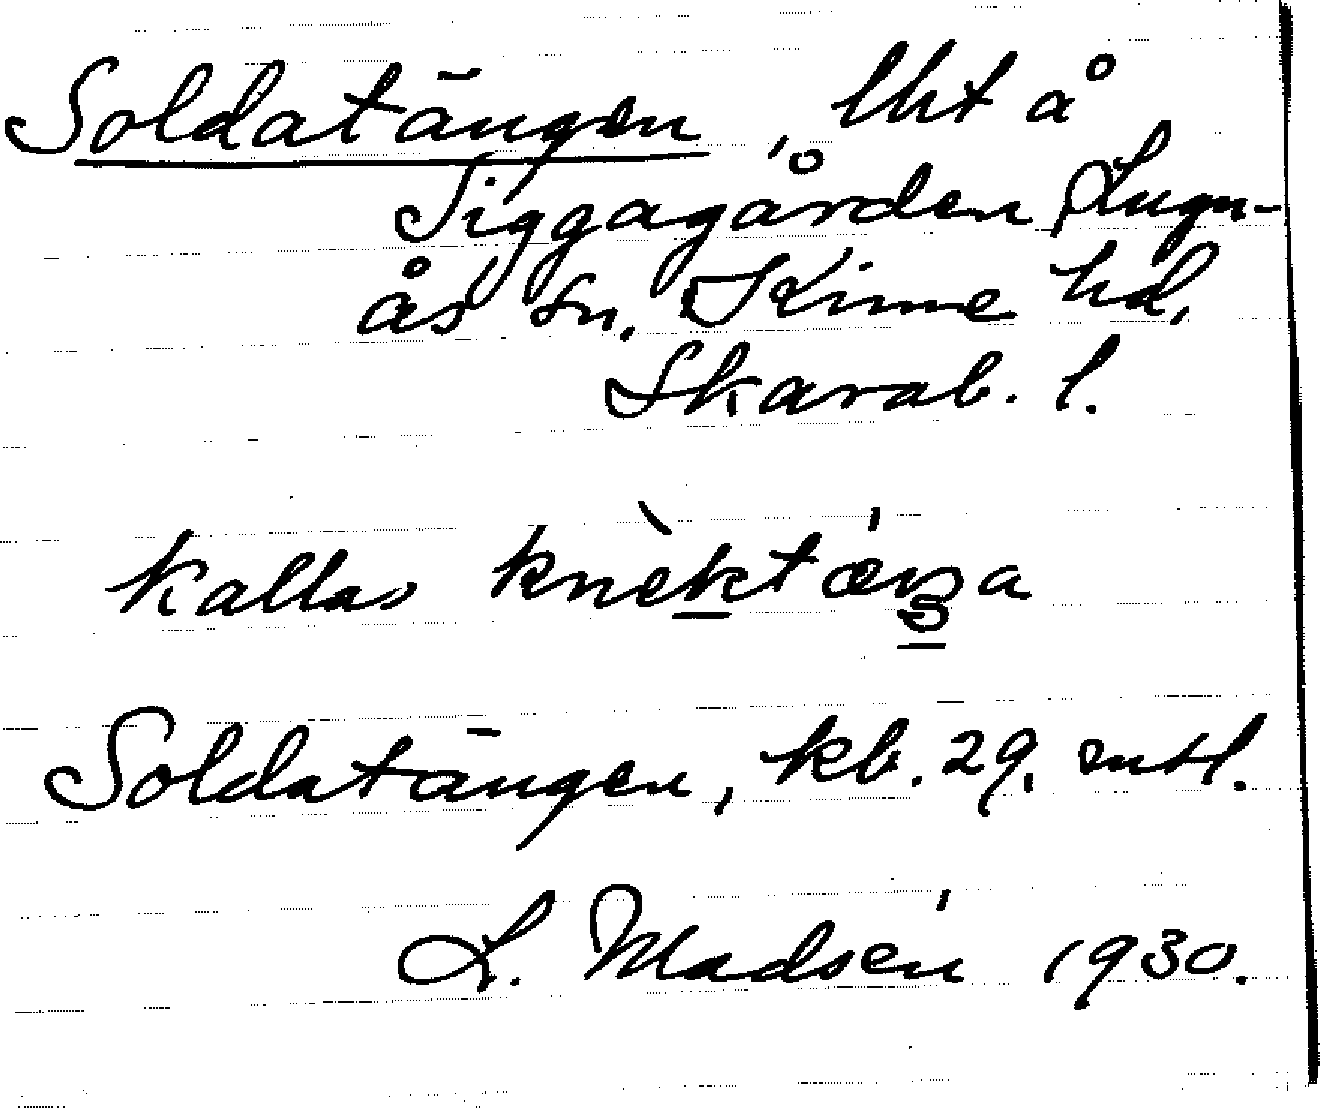 Soldatängen, lht å
Siggagården, Lugn-
ås sn. Kinne hd,
Skarab. l.
kallas knèktæŋa
Soldatängen, kb. 29. mtl.
L. Madsén 1930.